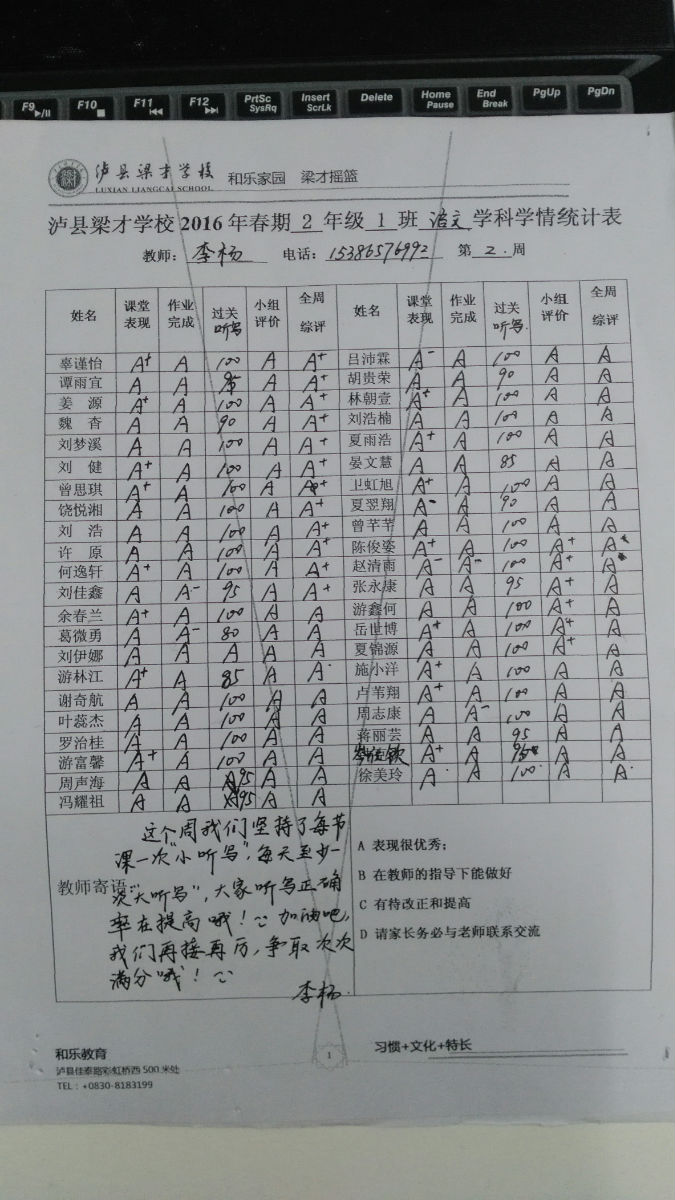 F9 F10 F11 F12 PrtSc SysRq Insert ScrLk Delete Home Pause End Break PgUp PgDn
泸县梁才学校 和乐家园 梁才摇篮
LUXIAN LIANGCAI SCHOOL
泸县梁才学校 2016 年春期 2 年级 1 班 语文 学科学情统计表
教师: 李杨 电话: 15386576992 第 2 周
姓名 课堂表现 作业完成 过关听写 小组评价 全周综评 姓名 课堂表现 作业完成 过关听写 小组评价 全周综评
辜谨怡 A+ A 100 A A+ 吕沛霖 A- A 100 A A
谭雨宜 A A 95 A A+ 胡贵荣 A A 90 A A
姜源 A+ A 100 A A+ 林朝壹 A+ A 100 A A
魏杏 A A 90 A A+ 刘浩楠 A A 100 A A
刘梦溪 A A 100 A A+ 夏雨浩 A+ A 100 A A
刘健 A+ A 100 A A+ 晏文慧 A A 85 A A
曾思琪 A+ A 100 A A+ 卫虹旭 A+ A 100 A A
饶悦湘 A A 100 A A+ 夏翌翔 A- A 90 A A
刘浩 A A 100 A A+ 曾芊芊 A A 100 A A
许原 A A 100 A A+ 陈俊姿 A+ A 100 A+ A+
何逸轩 A+ A 100 A A+ 赵清雨 A- A- 100 A+ A
刘佳鑫 A A- 95 A A+ 张永康 A A 95 A+ A
余春兰 A+ A 100 A A 游鑫何 A A 100 A+ A
葛微勇 A A- 80 A A 岳世博 A+ A 100 A+ A
刘伊娜 A A A A A 夏锦源 A A 100 A+ A
游林江 A+ A 85 A A 施小洋 A+ A 100 A A
谢奇航 A A 100 A A 卢苇翔 A+ A 100 A A
叶蕊杰 A A 100 A A 周志康 A A- 100 A A
罗治桂 A A 100 A A 蒋丽芸 A A 95 A A
游富馨 A+ A 100 A A A+ A 95 A A
周声海 A A 95 A A 徐美玲 A A 100 A A
冯耀祖 A A 95 A A
这个周我们坚持了每节
课一次“小听写”,每天至少一
教师寄语: 次“大听写”,大家听写正确
率在提高哦!加油吧,
我们再接再厉,争取次次
满分哦!
李杨
A 表现很优秀;
B 在教师的指导下能做好
C 有待改正和提高
D 请家长务必与老师联系交流
和乐教育 1 习惯+文化+特长
泸县佳泰路彩虹桥西 500 米处
TEL:+0830-8183199